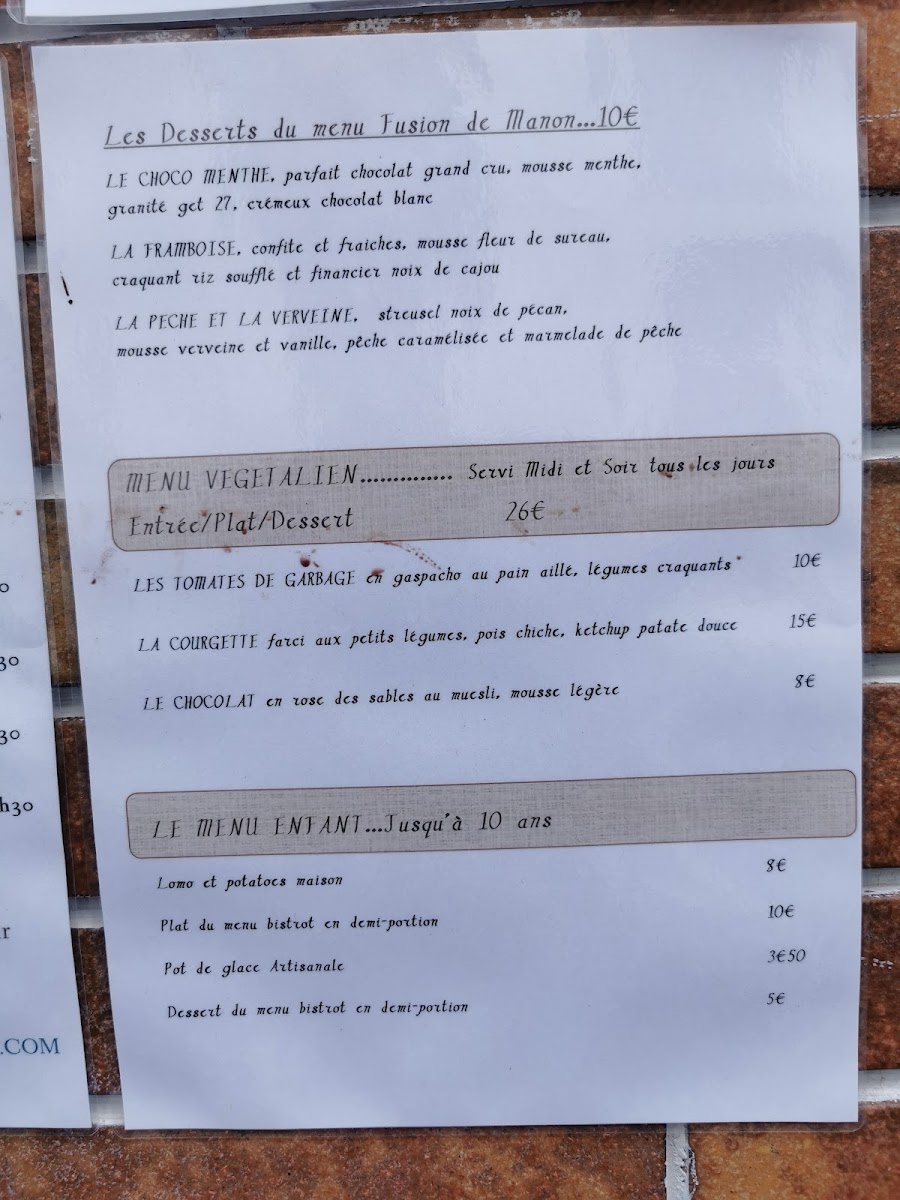 Les Desserts du menu Fusion de Manon...10€
LE CHOCO MENTHE, parfait chocolat grand cru, mousse menthe,
granité get 27, crémeux chocolat blanc
LA FRAMBOISE, confite et fraiches, mousse fleur de sureau,
craquant riz soufflé et financier noix de cajou
LA PECHE ET LA VERVEINE, streusel noix de pécan,
mousse verveine et vanille, pêche caramélisée et marmelade de pêche
MENU VEGETALIEN.............. Servi Midi et Soir tous les jours
Entrée/Plat/Dessert 26€
LES TOMATES DE GARBAGE en gaspacho au pain aillé, légumes craquants 10€
LA COURGETTE farci aux petits légumes, pois chiche, ketchup patate douce 15€
LE CHOCOLAT en rose des sables au muesli, mousse légère 8€
LE MENU ENFANT...Jusqu'à 10 ans
Lomo et potatoes maison 8€
Plat du menu bistrot en demi-portion 10€
Pot de glace Artisanale 3€50
Dessert du menu bistrot en demi-portion 5€
30
30
h30
.COM